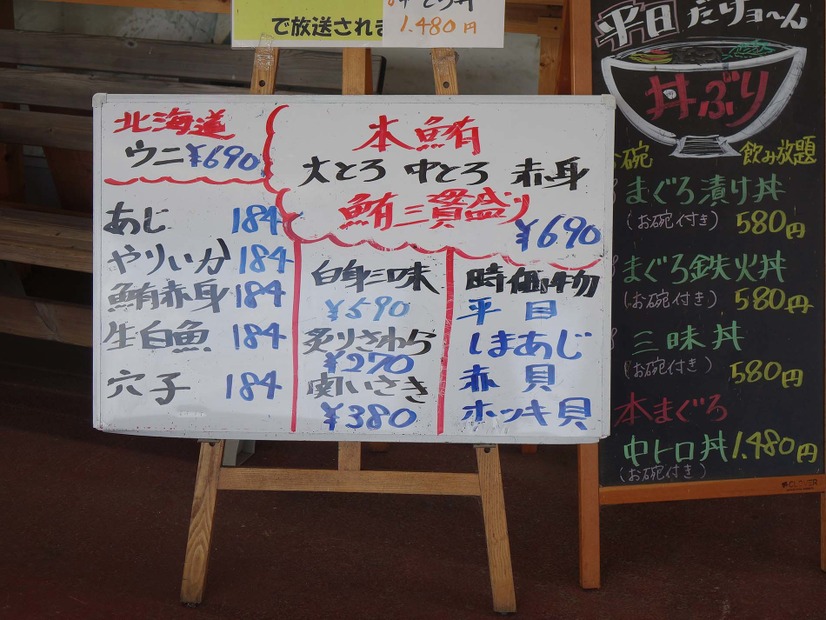 で放送されま
1.480円
北海道
ウニ¥690
あじ 184
やりいか 184
鮪赤身 184
生白魚 184
穴子 184
本鮪
大とろ 中とろ 赤身
鮪三貫盛り
¥690
白身三味
¥590
炙りさわら
¥270
関いさき
¥380
時価物
平目
しまあじ
赤貝
ホッキ貝
平日だけョ〜ん
丼ぶり
碗 飲み放題
まぐろ漬け丼
(お碗付き) 580円
まぐろ鉄火丼
(お碗付き) 580円
三味丼
(お碗付き) 580円
本まぐろ
中トロ丼 1.480円
(お碗付き)
CLOVER